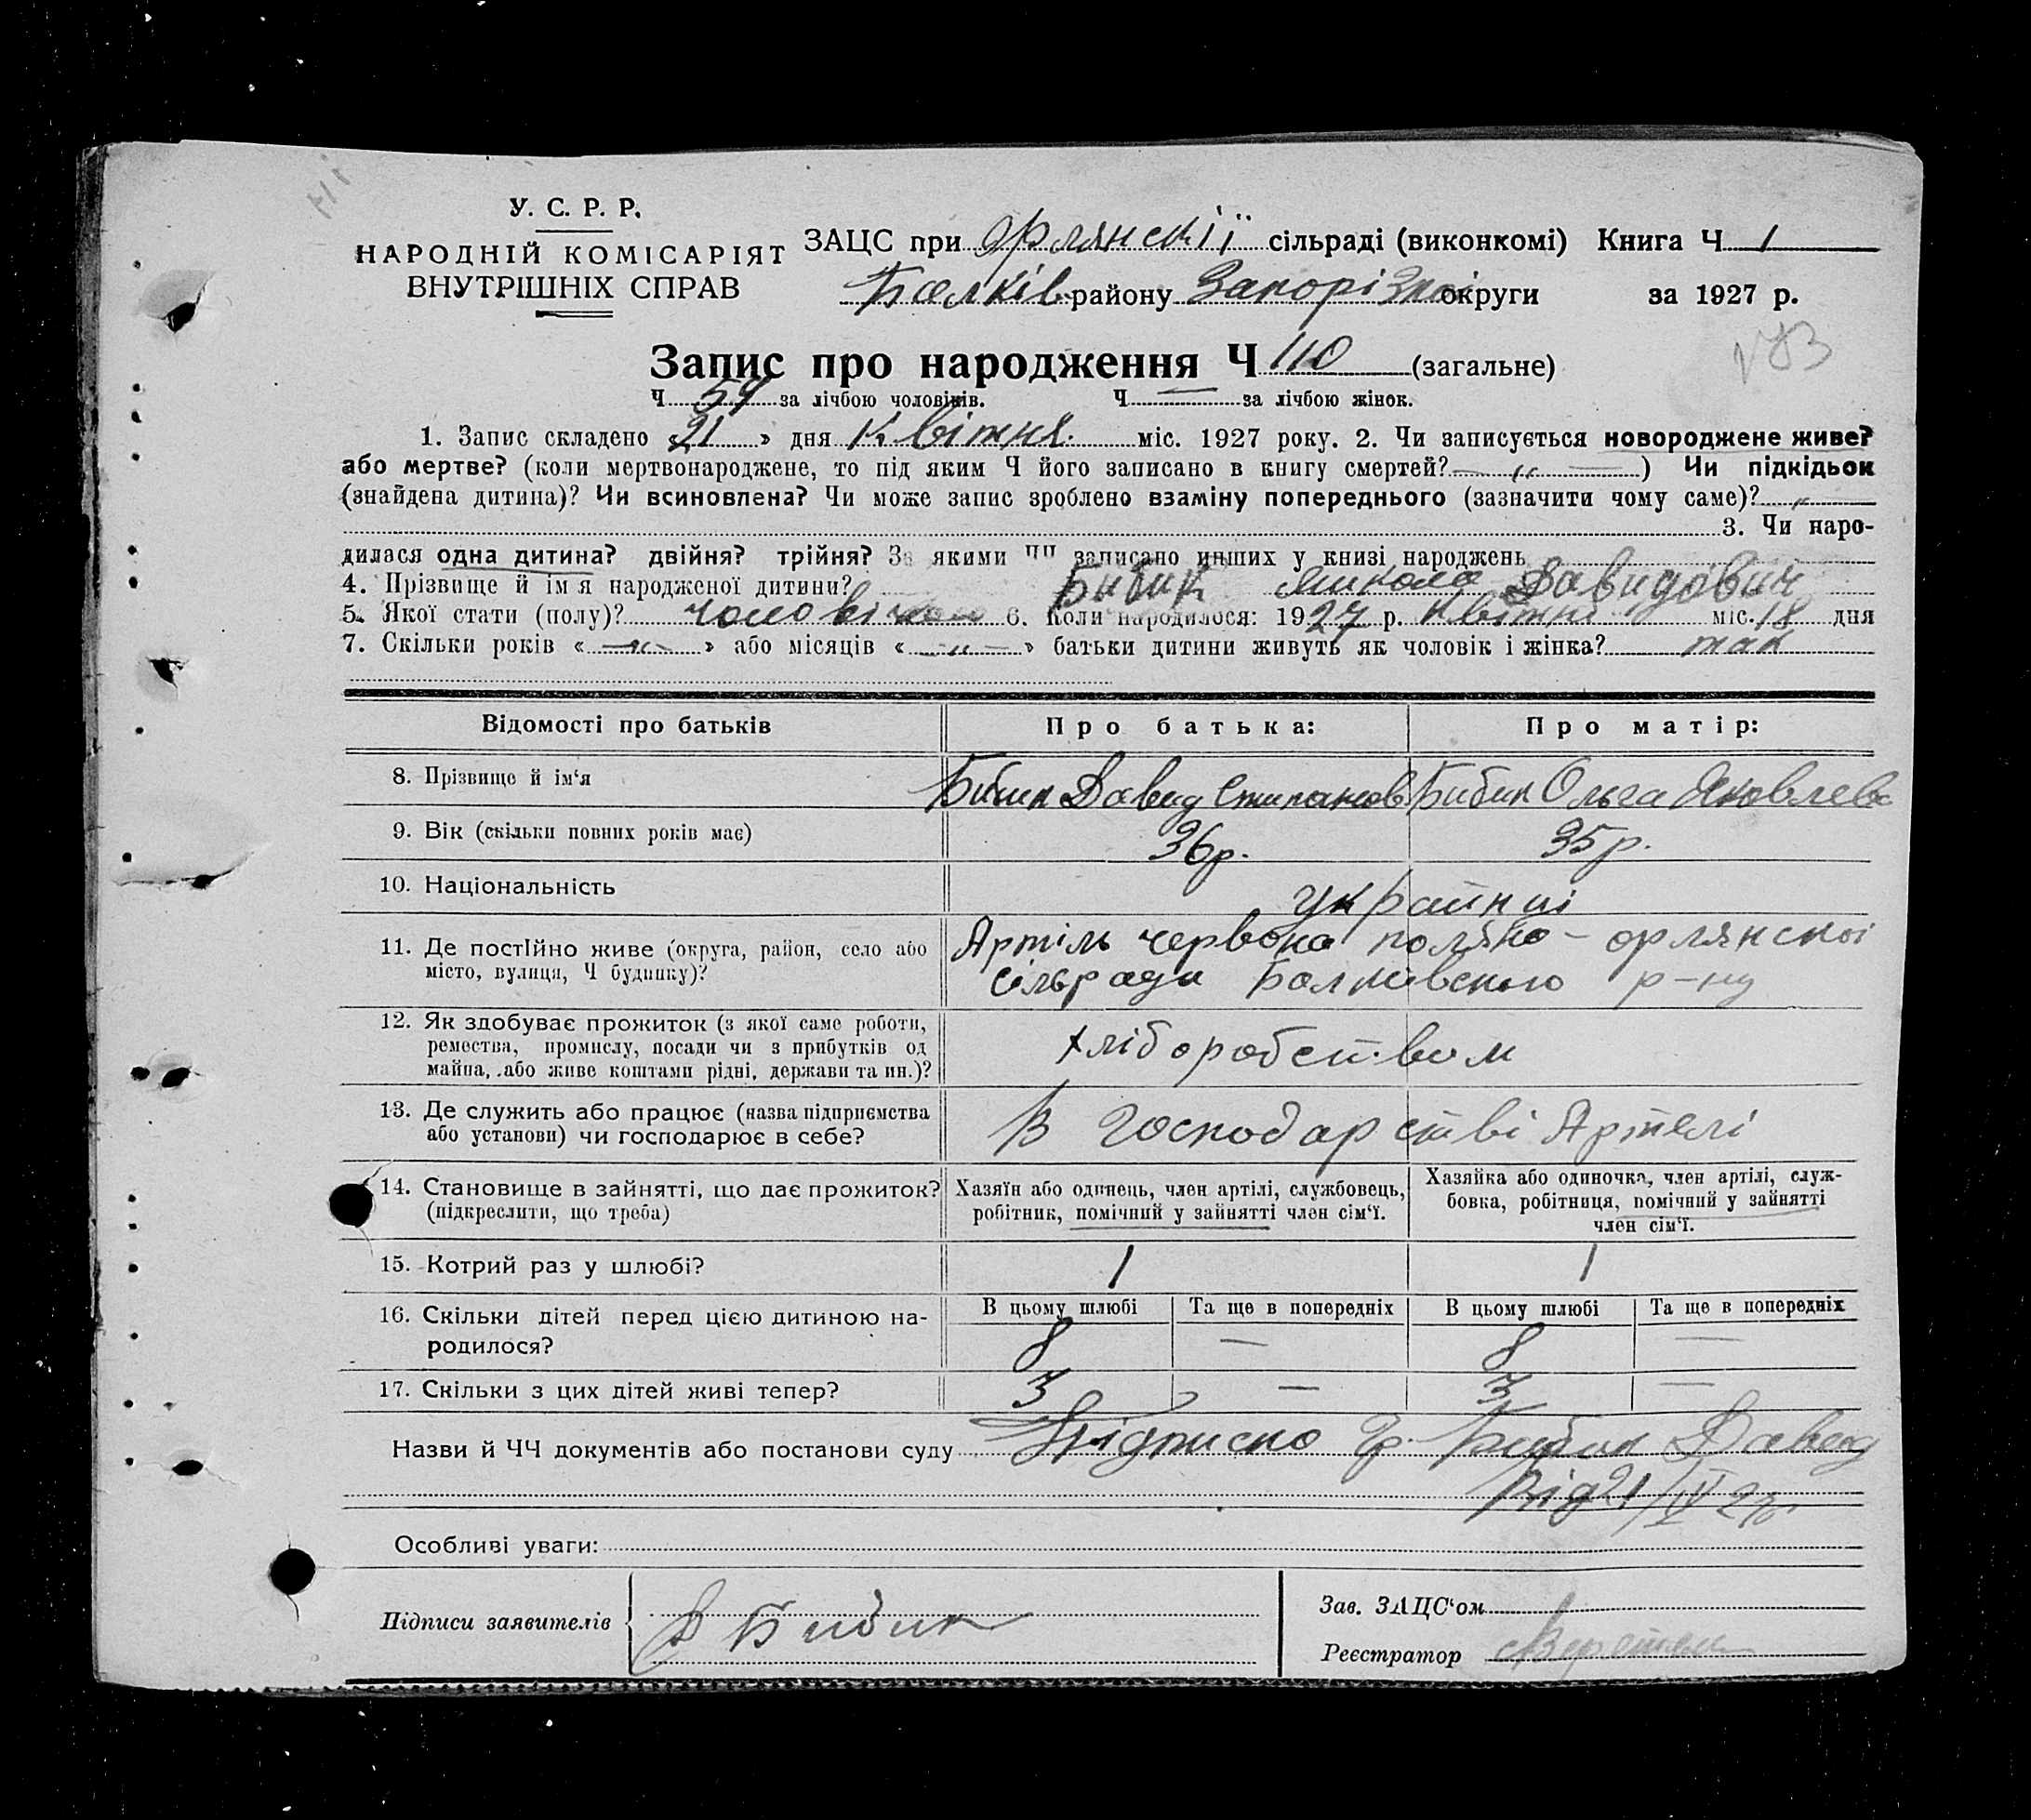 У. С. Р. Р.
НАРОДНІЙ КОМІСАРІЯТ
ВНУТРІШНІХ СПРАВ
ЗАЦС при Орлянскії сільраді (виконкомі) Книга Ч 1
Балків району Запорізкої округи за 1927 р.
Запис про народження Ч 110 (загальне)
Ч 59 за лічбою чоловіків. Ч — за лічбою жінок.
1. Запис складено «21» дня Квітня міс. 1927 року. 2. Чи записується новороджене живе?
або мертве? (коли мертвонароджене, то під яким Ч його записано в книгу смертей? — „ —) Чи підкідьок
(знайдена дитина)? Чи всиновлена? Чи може запис зроблено взаміну попереднього (зазначити чому саме)? „ —
3. Чи наро-
дилася одна дитина? двійня? трійня? За якими ЧЧ записано инших у книзі народжень
4. Прізвище й ім'я народженої дитини? Бибик Микола Давидович
5. Якої стати (полу)? 6. Коли народилося: 1927 р. Квітня міс. 18 дня
7. Скільки років «—„—» або місяців «—„—» батьки дитини живуть як чоловік і жінка? так
Відомості про батьків Про батька: Про матір:
8. Прізвище й ім'я Бибик Давид Степанов Бибик Ольга Яковлева
9. Вік (скільки повних років має) 36 р. 35 р.
10. Національність українці
11. Де постійно живе (округа, район, село або
місто, вулиця, Ч будинку)?
Артіль червона поляно-орлянскої
сільради Балківского р-ну
12. Як здобуває прожиток (з якої саме роботи,
ремества, промислу, посади чи з прибутків од
майна, або живе коштами рідні, держави та ин.)?
хліборобством
13. Де служить або працює (назва підприємства
або установи) чи господарює в себе?
В господарстві Артелі
14. Становище в зайнятті, що дає прожиток?
(підкреслити, що треба)
Хазяїн або одинець, член артілі, службовець,
робітник, помічний у зайнятті член сім'ї.
Хазяйка або одиночка, член артілі, служ-
бовка, робітниця, помічний у зайнятті
член сім'ї.
15. Котрий раз у шлюбі? 1 1
16. Скільки дітей перед цією дитиною на-
родилося?
В цьому шлюбі Та ще в попередніх В цьому шлюбі Та ще в попередніх
8 — 8 —
17. Скільки з цих дітей живі тепер? 3 — 3 —
Назви й ЧЧ документів або постанови суду Підписко гр. Бибик Давид
Від 21/IV 27р.
Особливі уваги:
Підписи заявителів Д Бибик
Зав. ЗАЦС'ом
Реєстратор